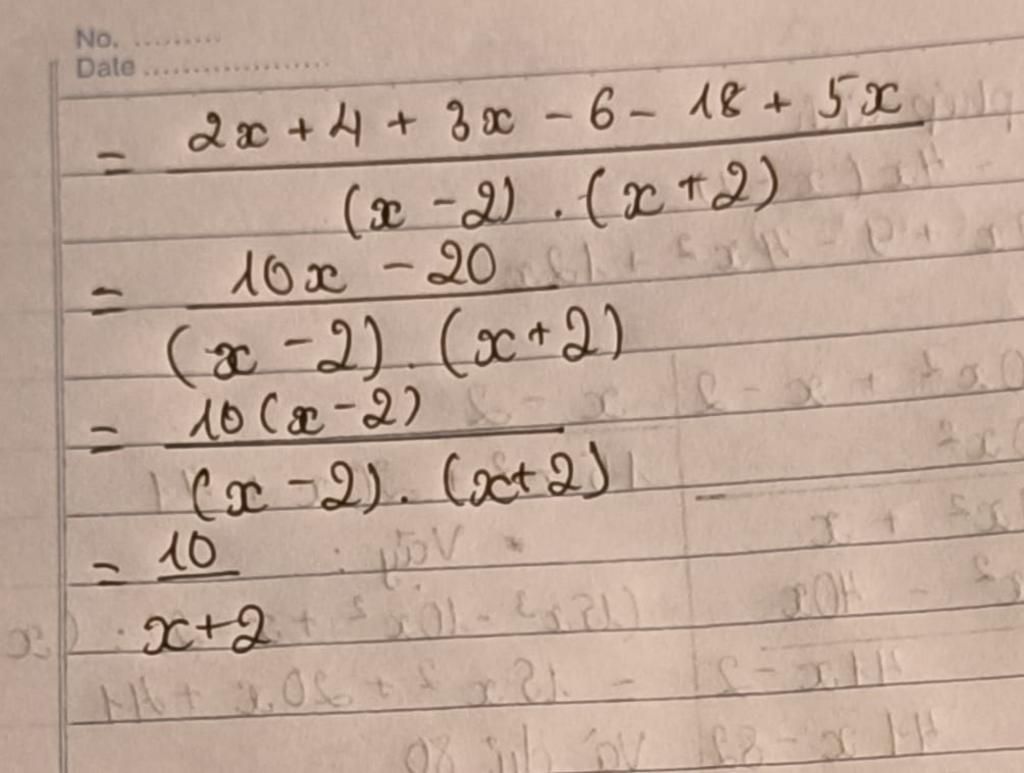 No. .........
Date ...................
= (2x + 4 + 3x - 6 - 18 + 5x) / ((x - 2) . (x + 2))
= (10x - 20) / ((x - 2) . (x + 2))
= 10(x - 2) / ((x - 2) . (x + 2))
= 10 / (x + 2)